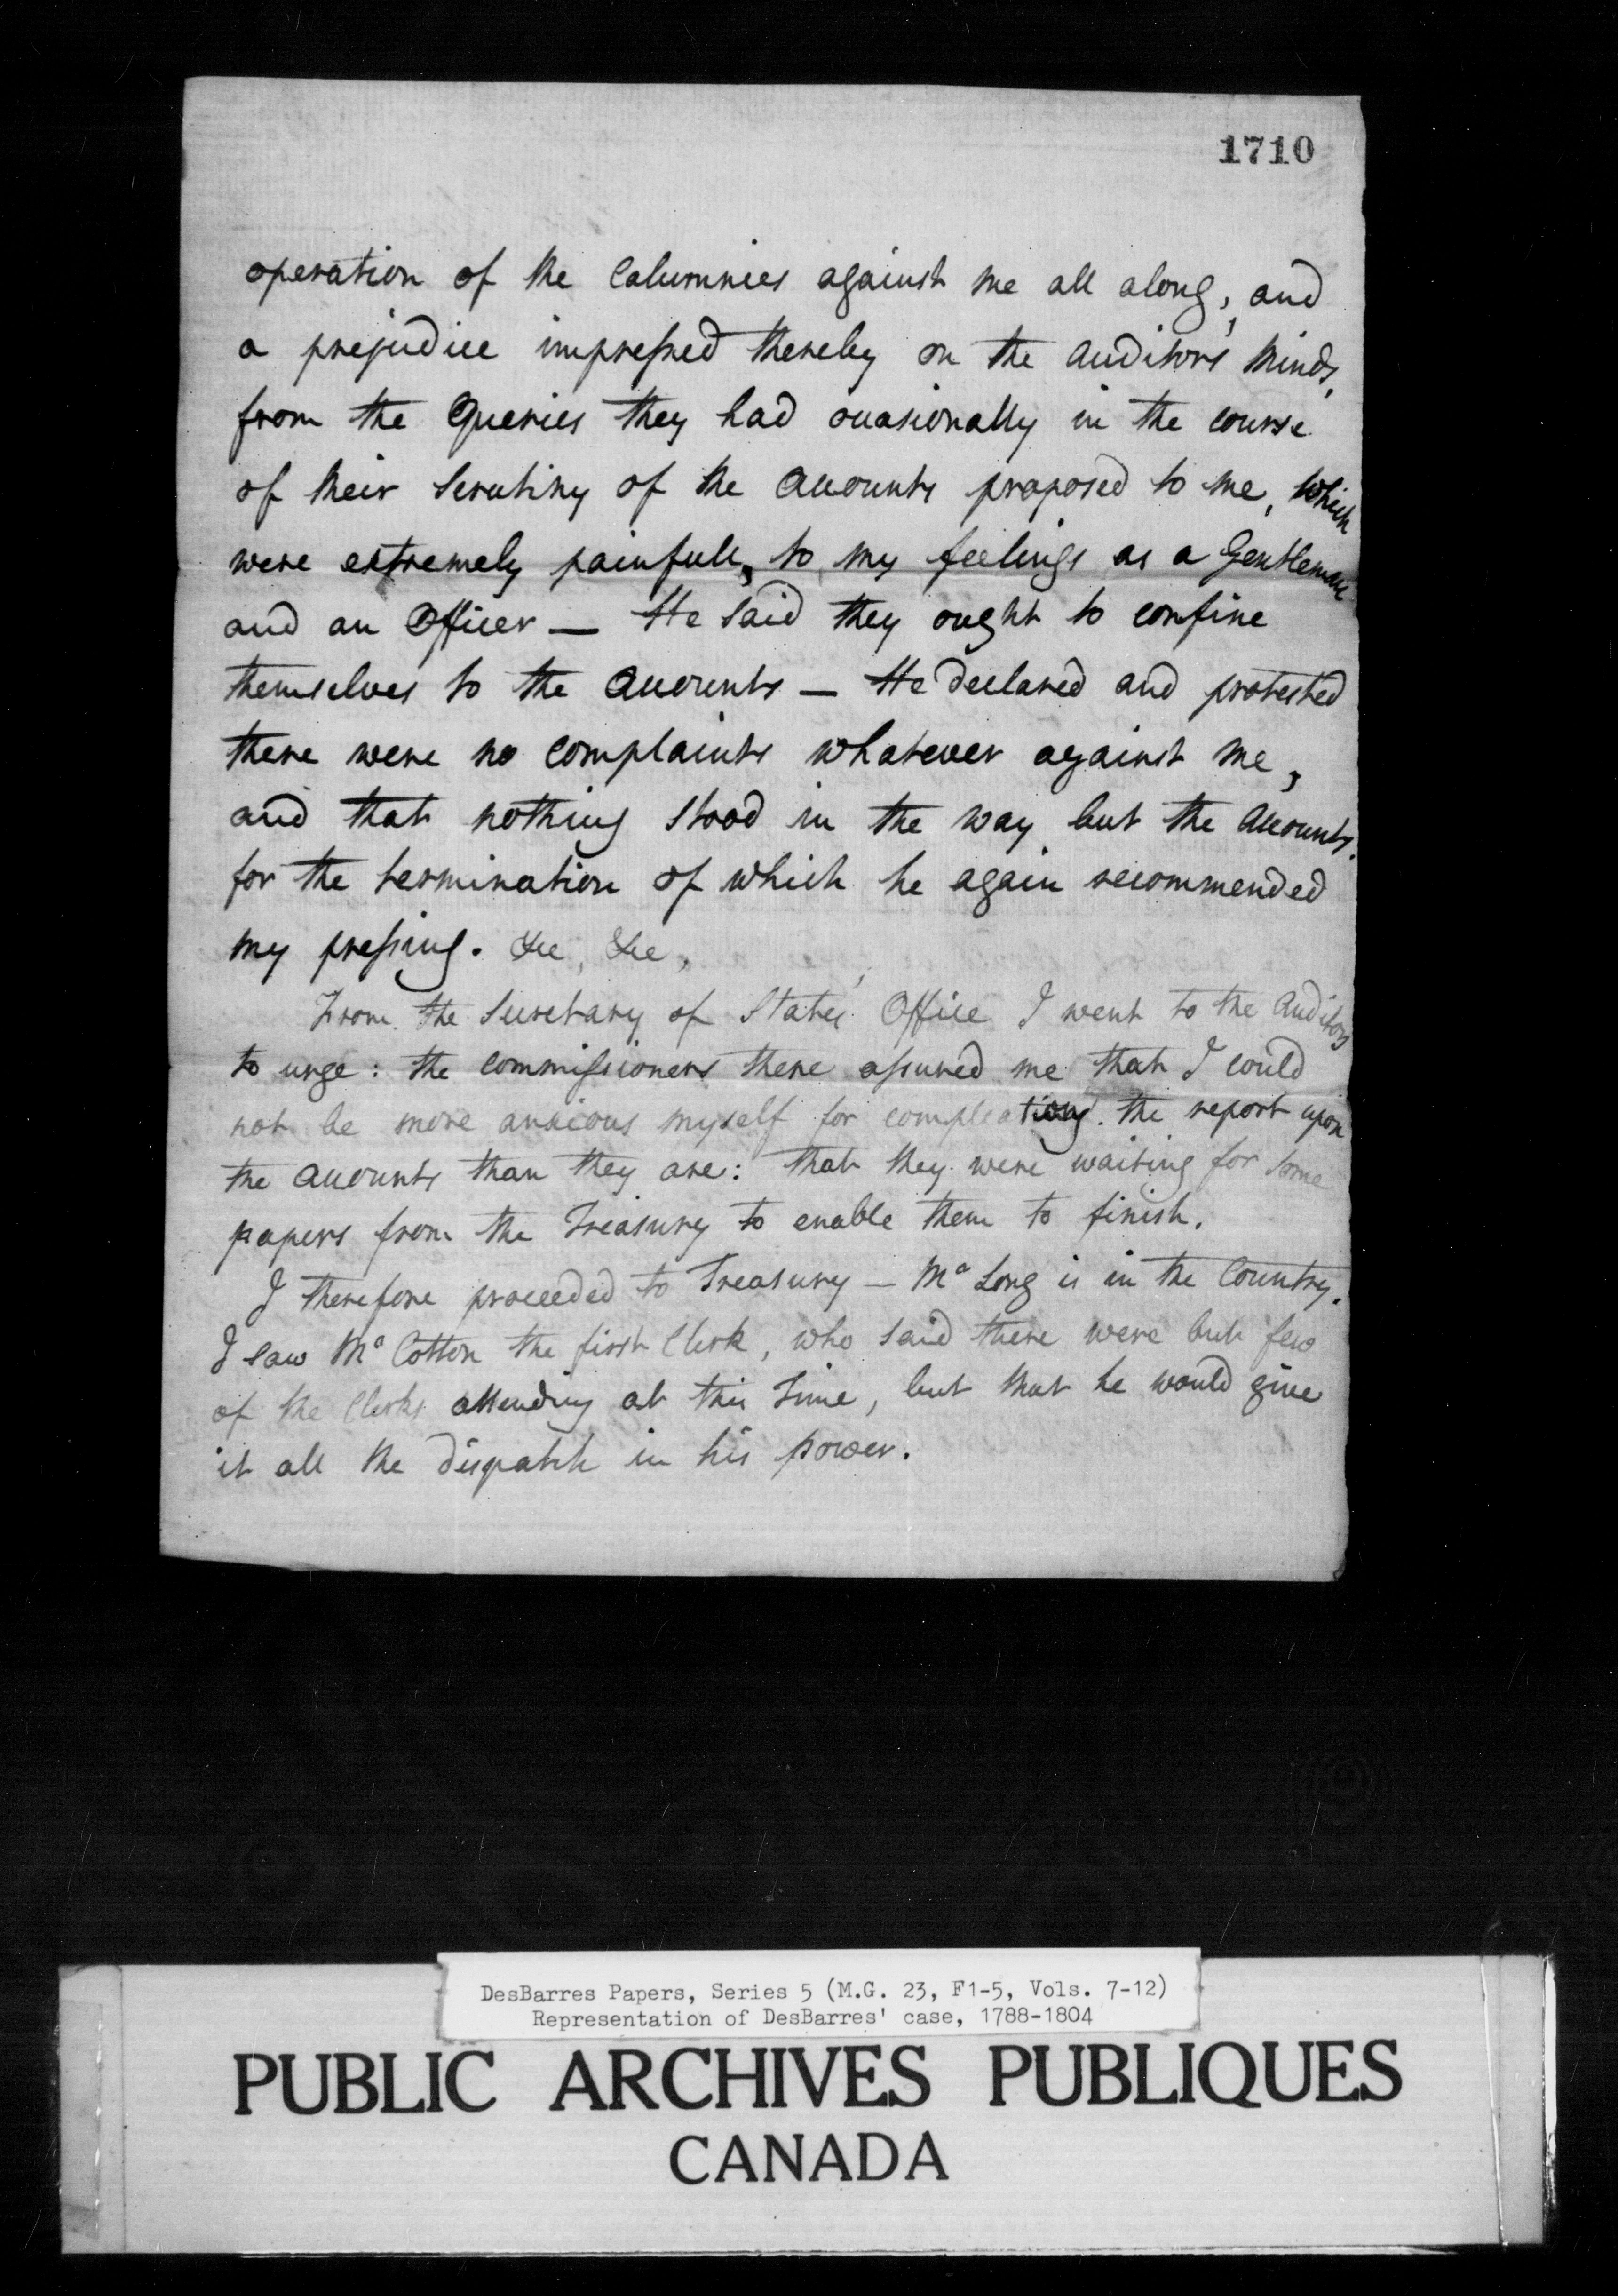 1710
operation of the Calumnies against me all along, and
a prejudice impressed thereby on the Auditors Minds,
from the Queries they had occasionally in the course
of their Scrutiny of the Accounts proposed to me, which
were extremely painfull, to my feelings as a Gentleman
and an Officer — He said they ought to confine
themselves to the Accounts — He declared and protested
there were no complaints whatever against me,
and that nothing stood in the way but the Accounts.
for the termination of which he again recommended
my pressing. &c, &c,
From the Secretary of States Office I went to the Auditors
to urge: the commissioners there assured me that I could
not be more anxious myself for compleating the report upon
the Accounts than they are: that they were waiting for some
papers from the Treasury to enable them to finish.
I therefore proceeded to Treasury — Mr Long is in the Country.
I saw Mr Cotton the first Clerk, who said there were but few
of the Clerks attending at this Time, but that he would give
it all the dispatch in his power.
DesBarres Papers, Series 5 (M.G. 23, F1-5, Vols. 7-12)
Representation of DesBarres' case, 1788-1804
PUBLIC ARCHIVES PUBLIQUES
CANADA